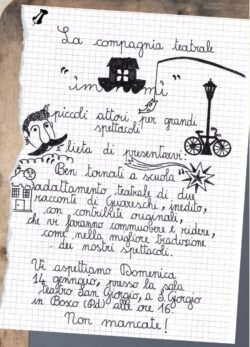 La compagnia teatrale
"im mi"
piccoli attori per grandi
spettacoli
è lieta di presentarvi:
"Ben tornati a scuola"
adattamento teatrale di due
racconti di Guareschi, inedito,
con contributi originali,
che vi faranno commuovere e ridere,
come nella migliore tradizione
dei nostri spettacoli.
Vi aspettiamo Domenica
14 gennaio, presso la sala
teatro San Giorgio, a S. Giorgio
in Bosco (Pd) alle ore 16
Non mancate!